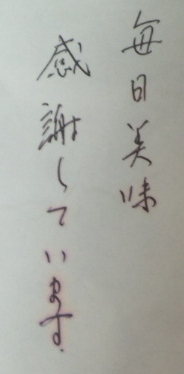 毎日美味
感謝しています.